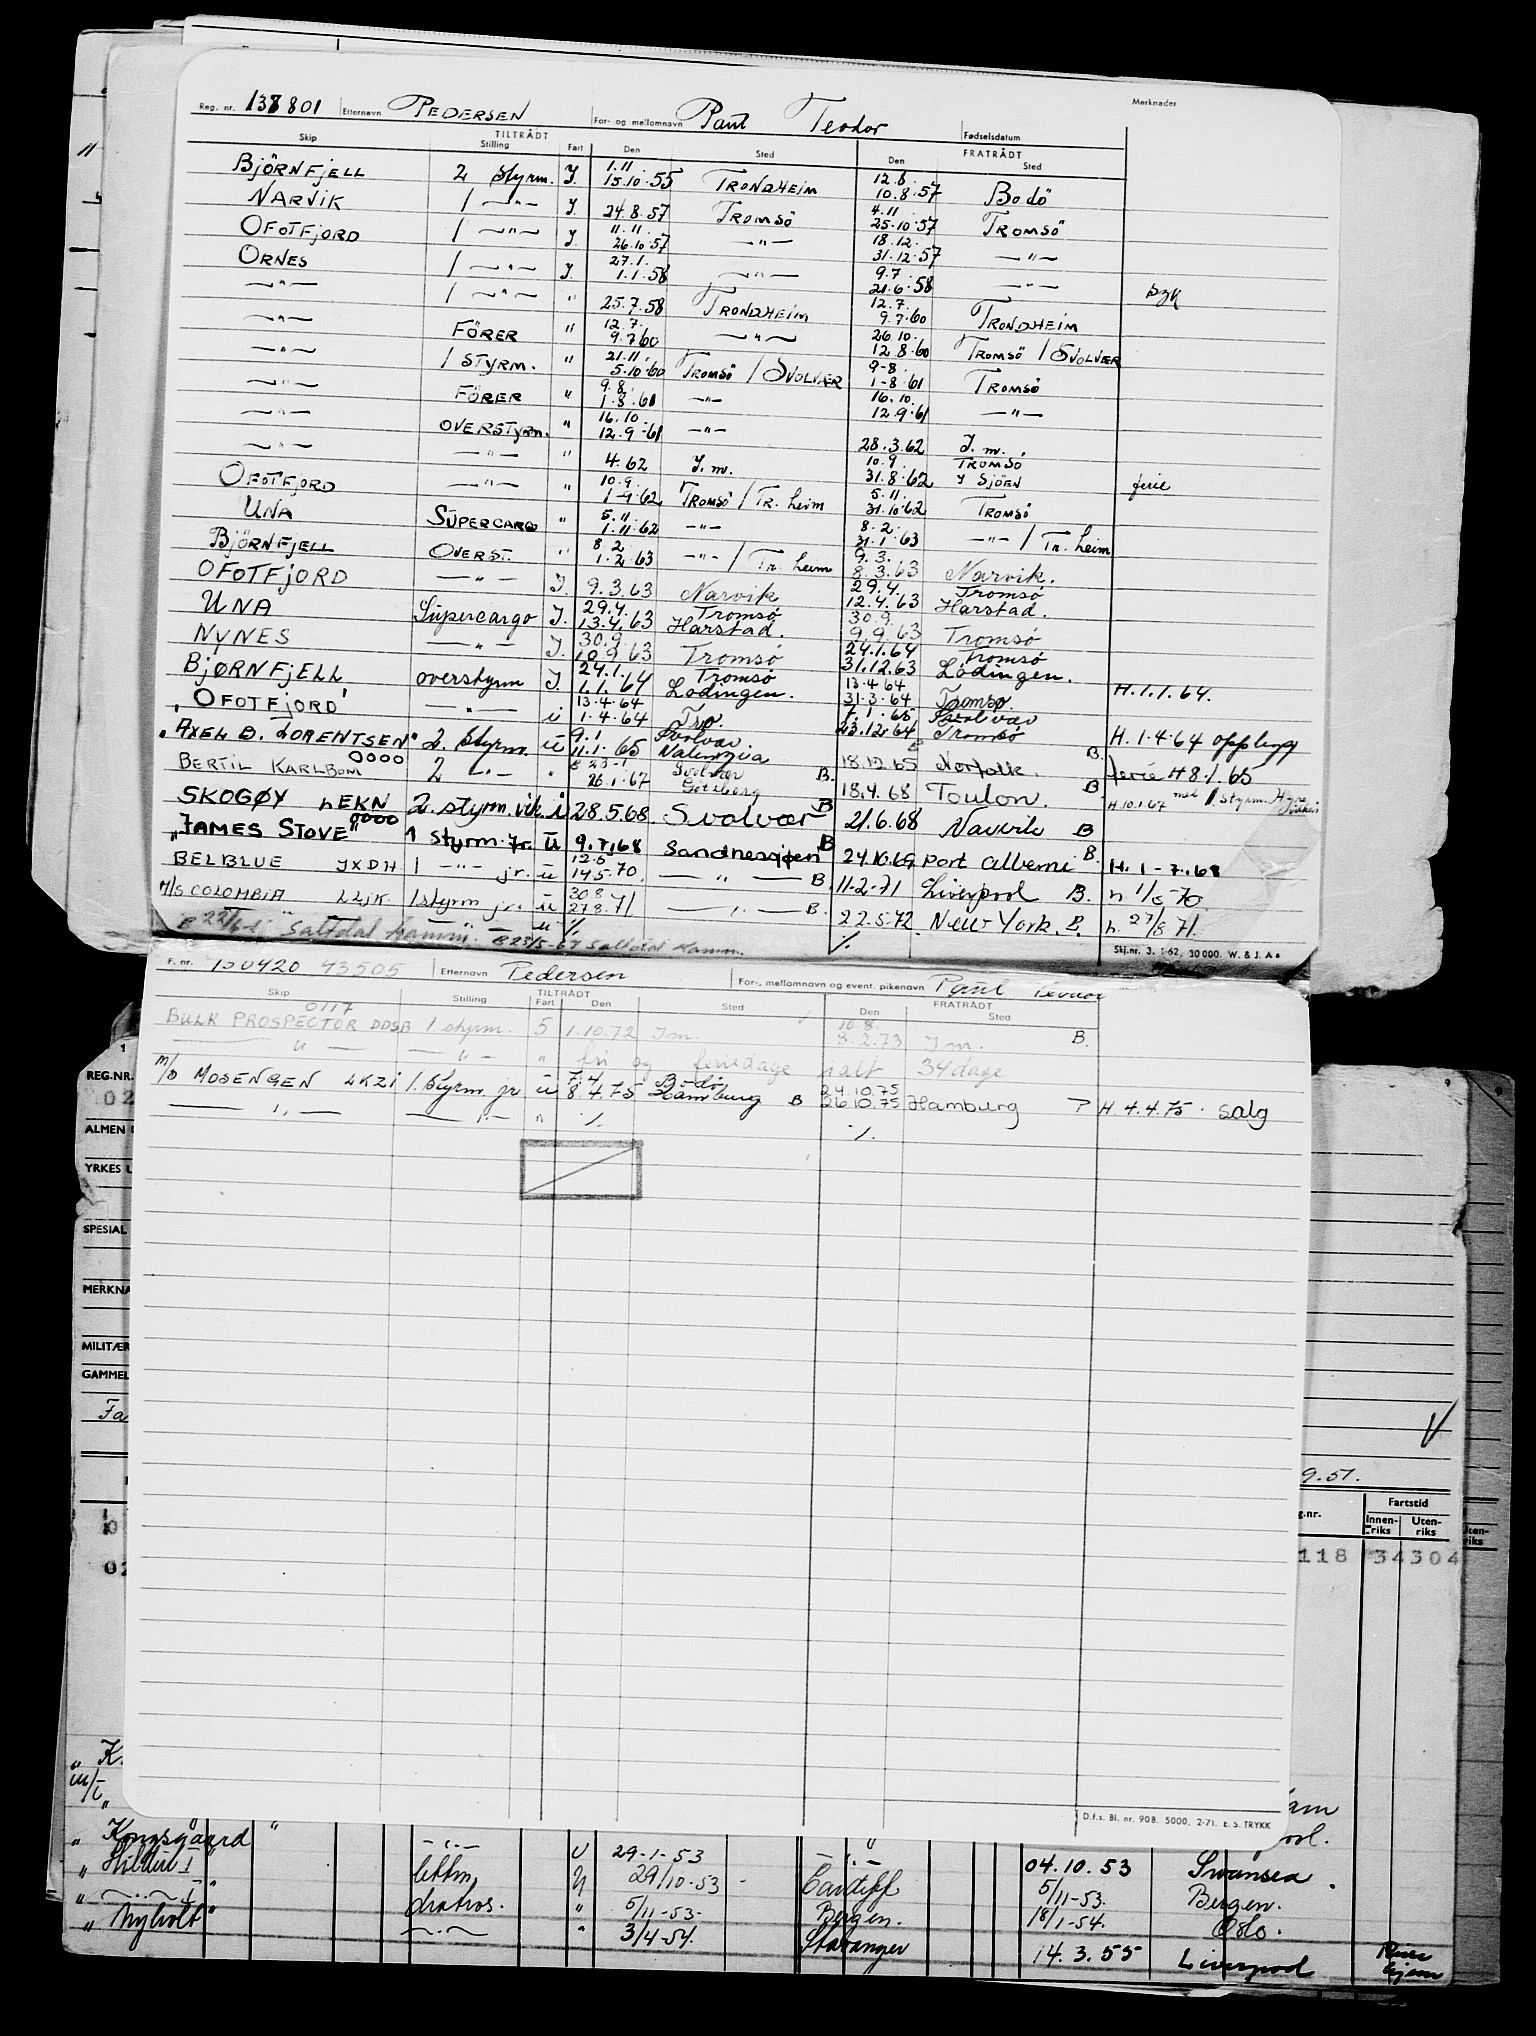 Reg. nr. 138801 Etternavn PEDERSEN For- og mellomnavn Paul Teodor Fødselsdatum Merknader
TILTRÅDT FRATRÅDT
Skip Stilling Fart Den Sted Den Sted
BJÖRNFJELL 2 styrm. J. 1.11 15.10.55 TRONDHEIM 12.8. 10.8.57 BODÖ
NARVIK 1 —"— J. 24.8.57 TROMSÖ 4.11 25.10.57 TROMSÖ
OFOTFJORD 1 —"— J. 11.11. 26.10.57 —"— 18.12. 31.12.57 —"—
ORNES 1 —"— J. 27.1. 1.1.58 —"— 9.7. 21.6.58 —"— syk
—"— 1 —"— " 25.7.58 TRONDHEIM 12.7. 9.7.60 TRONDHEIM
—"— FÖRER " 12.7. 9.7.60 —"— 26.10. 12.8.60 TROMSÖ / SVOLVÆR
—"— 1 STYRM. " 21.11. 5.10.60 TROMSÖ / SVOLVÆR 9-8. 1-8.61 TROMSÖ
—"— FÖRER " 9.8. 1.8.61 —"— 16.10. 12.9.61 —"—
—"— OVERSTYRM. " 16.10. 12.9.61 —"— 28.3.62 J. m.
—"— —"— " 4.62 J. m. 10.9. 31.8.62 TROMSÖ Y SJÖEN ferie
OFOTFJORD —"— " 10.9. 1-9.62 TROMSÖ / TR. heim 5.11. 31.10.62 TROMSÖ
UNA SUPERCARGO " 5.11. 1.11.62 —"— 8.2. 31.1.63 —"— / TR. heim
BJÖRNFJELL OVERST. " 8.2. 1.2.63 —"— / Tr. heim 9.3. 8.3.63 Narvik.
OFOTFJORD —"— J. 9.3.63 Narvik 29.4. 12.4.63 Tromsö Harstad.
UNA Supercargo J. 29.4. 13.4.63 Tromsö Harstad. 30.9. 9.9.63 Tromsö
NYNES —"— J. 30.9. 10.9.63 Tromsö 24.1.64 31.12.63 Tromsö Lödingen.
BJØRNFJELL overstyrm J. 24.1. 1.1.64 Tromsø Lödingen. 13.4.64 31.3.64 Tromsø. H.1.1.64.
"OFOTFJORD" —"— ü 13.4.64 1.4.64 Trø. 7.1.65 23.12.64 Svolvær Tromsö H. 1.4.64 opplegg
"AXEL B. LORENTSEN" 2. styrm. ü 9.1 11.1.65 Svolvær Valenzia 18.12.65 Norfolk. B. ferie H 8.1.65
BERTIL KARLBOM 0000 2 —"— " 23-1 26.1.67 Svolvær Göteborg B. 18.4.68 Toulon. B H.10.1.67 med 1. Styrm.
SKOGØY LEKN 2. styrm. vik. i 28.5.68 Svolvær B 21.6.68 Narvik B
"JAMES STOVE" 0000 1 styrm. jr. ü 9.7.68 Sandnessjøen B 24.10.69 Port Alberni B. H. 1-7.68
BELBLUE JXDH 1 —"— jr. ü 12.5 14.5.70. —"— B. 11-2-71 Liverpool B. h 1/5-70
M/S COLOMBIA LLJK 1 styrm jr. ü 30.8 27.8.71 —"— B. 22.5.72 New York. B. h. 27/8 71.
B 22/6-61 "Saltdal kamm". —"— ü % B 23/5-67 Saltdal kamm. %
Skj.nr. 3. 1-62, 30 000. W. & J. A s
F. nr. 150420 43505 Etternavn Pedersen For-, mellomnavn og event. pikenavn Paul Teodor
TILTRÅDT FRATRÅDT
Skip Stilling Fart Den Sted Den Sted
0117
BULK PROSPECTOR DDSB 1. styrm. 5 1.10.72 J m. 10.8. 8.2.73 J m. B.
—"— —"— " fri og feriedage ialt 34 dage
M/S MOSENGEN LKZI 1. Styrm jr ü 7.4 8.4.75 Bodö Hamburg B 24.10.75 26.10.75 Hamburg P H 4.4.75. salg
—"— —"— " % %
D.f.s. Bl. nr. 908. 5000. 2-71. E. S. TRYKK
REG.NR.
02
ALMEN
YRKES U
SPESIAL
MERKNA
MILITÆR
GAMMEL
Fa
9.51.
g.nr. Fartstid
Innen-riks Uten-riks
118 34304
02
" K
m/t
am
ool.
" Kongsgaard " —"— U 29-1-53 —"— 04.10.53 Swansea.
" Hildur I " lettm. U 29/10-53 Cardiff 5/11-53. Bergen.
" —"— I " matros. " 5/11-53- Bergen. 18/1-54. Oslo.
" Nyholt " —"— " 3/4-54. Stavanger 14.3.55 Liverpool Reise hjem